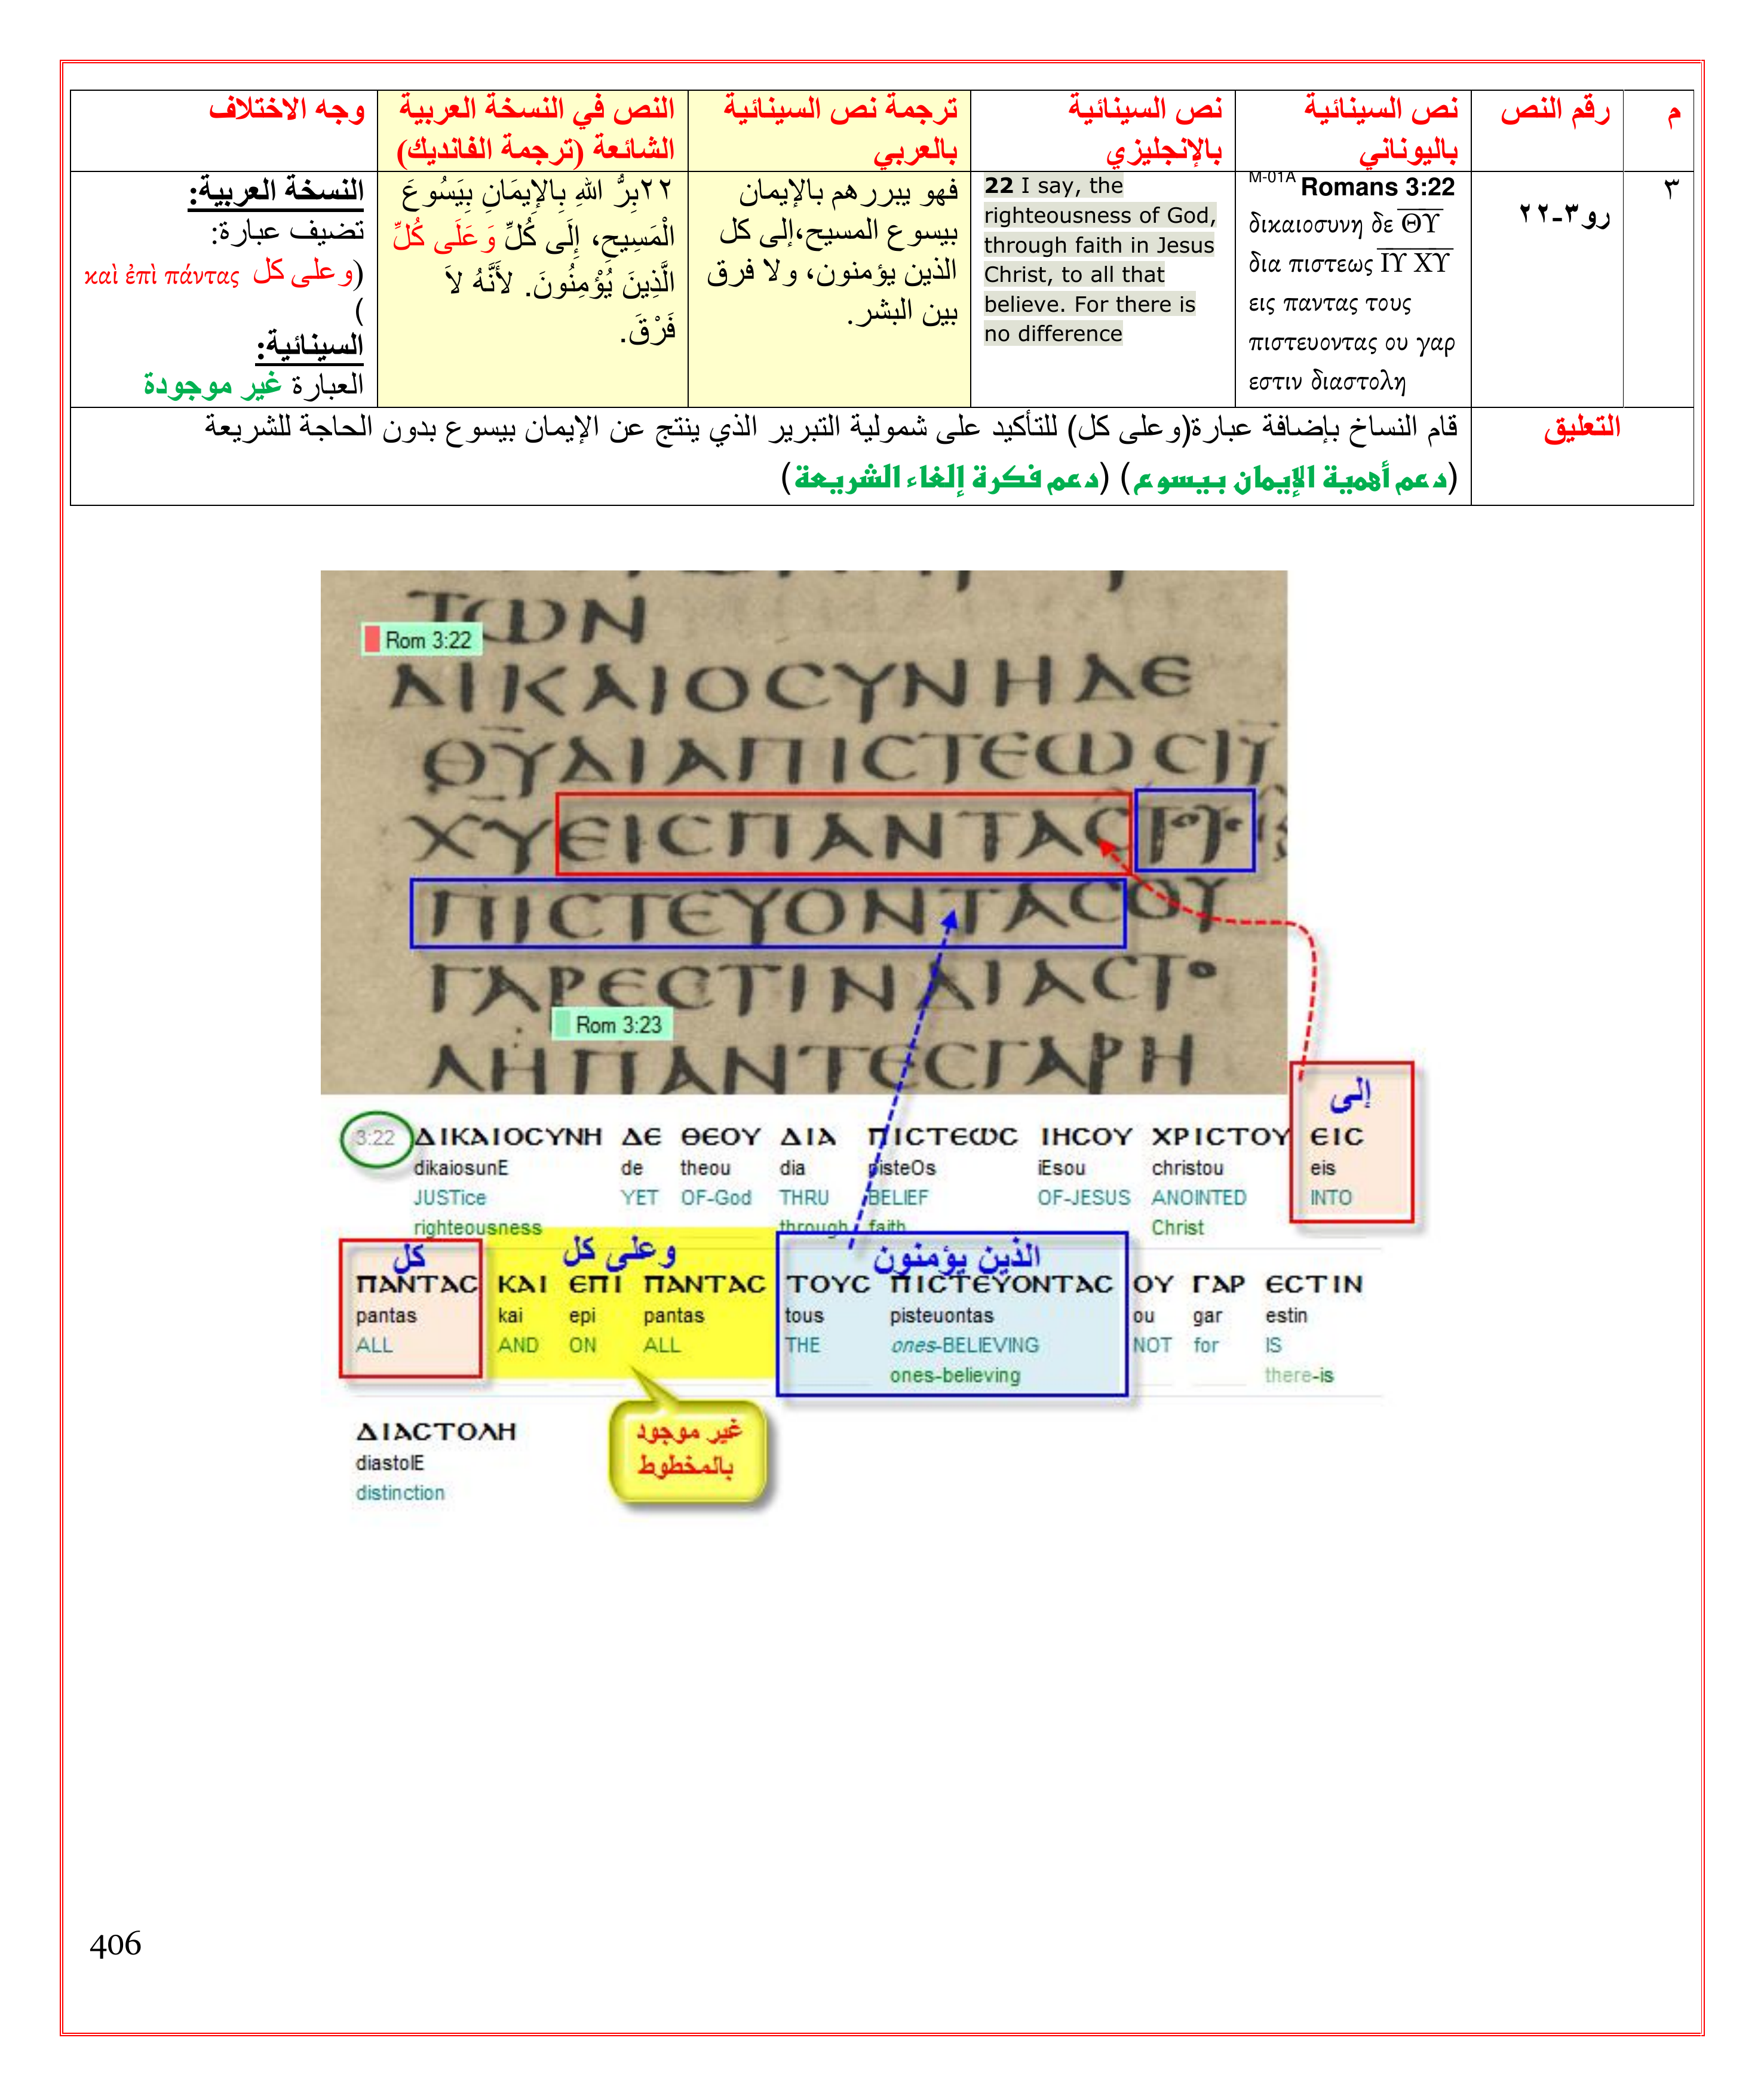 م
رقم النص
نص السينائية
باليوناني
نص السينائية
بالإنجليزي
ترجمة نص السينائية
بالعربي
النص في النسخة العربية
الشائعة (ترجمة الفانديك)
وجه الاختلاف
٣
رو٣-٢٢
M-01A Romans 3:22
δικαιοσυνη δε Θ̅Υ̅
δια πιστεως Ι̅Υ̅ Χ̅Υ̅
εις παντας τους
πιστευοντας ου γαρ
εστιν διαστολη
22 I say, the
righteousness of God,
through faith in Jesus
Christ, to all that
believe. For there is
no difference
فهو يبررهم بالإيمان
بيسوع المسيح،إلى كل
الذين يؤمنون، ولا فرق
بين البشر.
٢٢بِرُّ اللهِ بِالإِيمَانِ بِيَسُوعَ
الْمَسِيحِ، إِلَى كُلِّ وَعَلَى كُلِّ
الَّذِينَ يُؤْمِنُونَ. لأَنَّهُ لاَ
فَرْقَ.
النسخة العربية:
تضيف عبارة:
(وعلى كل καὶ ἐπὶ πάντας
)
السينائية:
العبارة غير موجودة
التعليق
قام النساخ بإضافة عبارة(وعلى كل) للتأكيد على شمولية التبرير الذي ينتج عن الإيمان بيسوع بدون الحاجة للشريعة
(دعم أهمية الإيمان بيسوع) (دعم فكرة إلغاء الشريعة)
ΤΩΝ
Rom 3:22
ΔΙΚΑΙΟϹΥΝΗΔΕ
Θ̅Υ̅ΔΙΑΠΙϹΤΕΩϹΙ̅Υ̅
Χ̅Υ̅ΕΙϹΠΑΝΤΑϹΤΟΥϹ
ΠΙϹΤΕΥΟΝΤΑϹΟΥ
ΓΑΡΕϹΤΙΝΔΙΑϹΤΟ
Rom 3:23
ΛΗΠΑΝΤΕϹΓΑΡΗ
إلى
3:22 ΔΙΚΑΙΟϹΥΝΗ ΔΕ ΘΕΟΥ ΔΙΑ ΠΙϹΤΕΩϹ ΙΗϹΟΥ ΧΡΙϹΤΟΥ ΕΙϹ
dikaiosunE de theou dia pisteOs iEsou christou eis
JUSTice YET OF-God THRU BELIEF OF-JESUS ANOINTED INTO
righteousness through faith Christ
كل وعلى كل الذين يؤمنون
ΠΑΝΤΑϹ ΚΑΙ ΕΠΙ ΠΑΝΤΑϹ ΤΟΥϹ ΠΙϹΤΕΥΟΝΤΑϹ ΟΥ ΓΑΡ ΕϹΤΙΝ
pantas kai epi pantas tous pisteuontas ou gar estin
ALL AND ON ALL THE ones-BELIEVING NOT for IS
ones-believing there-is
غير موجود
بالمخطوط
ΔΙΑϹΤΟΛΗ
diastolE
distinction
406